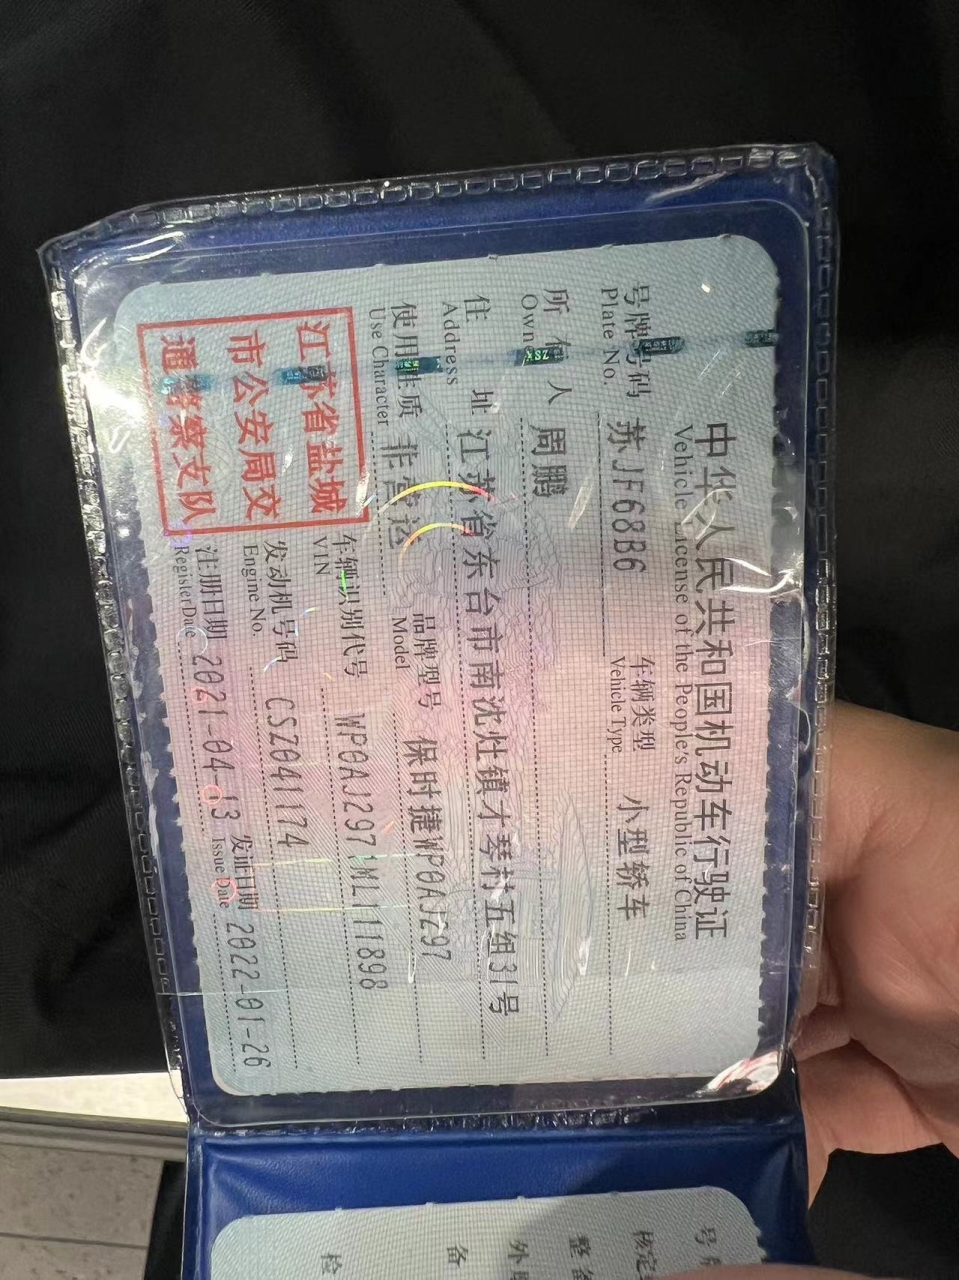 中华人民共和国机动车行驶证
Vehicle License of the People's Republic of China
号牌号码 苏JF68B6 车辆类型 小型轿车
Plate No. Vehicle Type
所有人 周鹏
Owner
住址 江苏省东台市南沈灶镇才琴村五组31号
Address
使用性质 非营运 品牌型号 保时捷WP0AJ297
Use Character Model
江苏省盐城
市公安局交
通警察支队
车辆识别代号 WP0AJ2971ML111898
VIN
发动机号码 CSZ041174
Engine No.
注册日期 2021-04-13 发证日期 2022-01-26
Register Date Issue Date
号
核定
整备
外
备
检